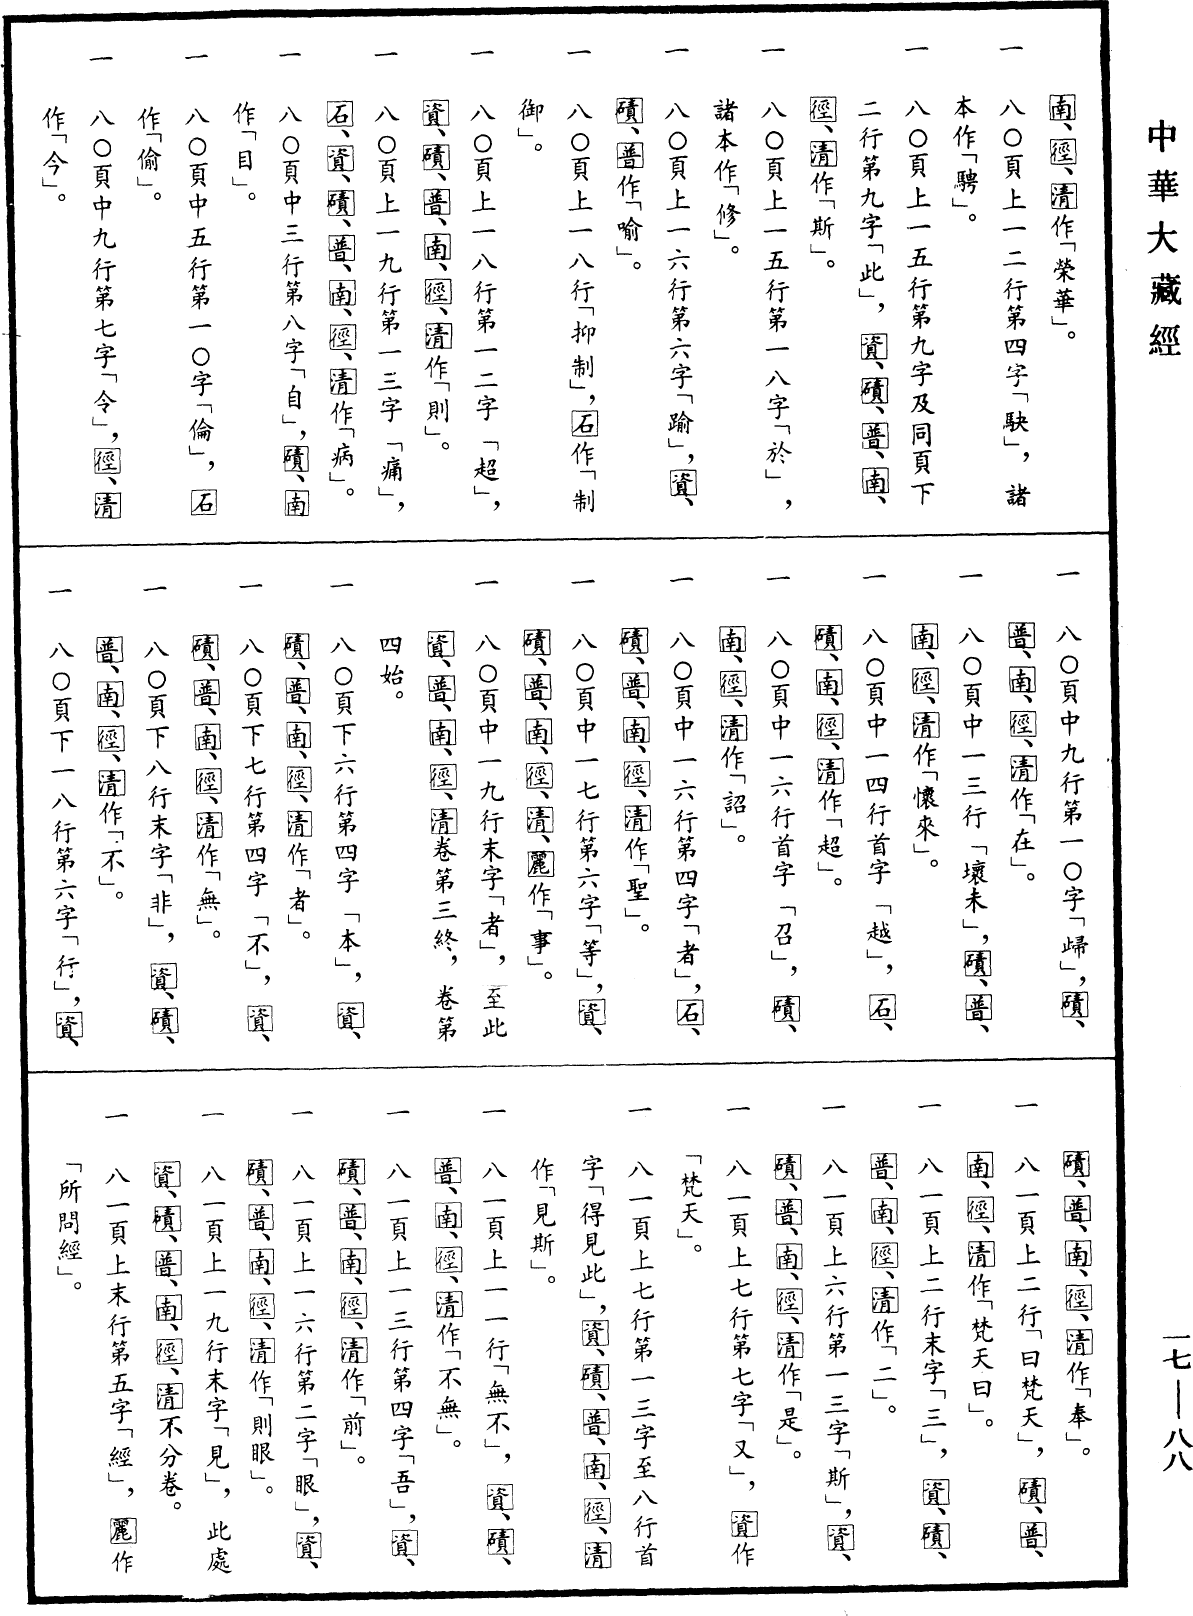 中華大藏經
南、徑、清作「榮華」。
一 八〇頁上一二行第四字「駃」，諸
本作「騁」。
一 八〇頁上一五行第九字及同頁下
二行第九字「此」，資、磧、普、南、
徑、清作「斯」。
一 八〇頁上一五行第一八字「於」，
諸本作「修」。
一 八〇頁上一六行第六字「踰」，資、
磧、普作「喻」。
一 八〇頁上一八行「抑制」，石作「制
御」。
一 八〇頁上一八行第一二字「超」，
資、磧、普、南、徑、清作「則」。
一 八〇頁上一九行第一三字「痛」，
石、資、磧、普、南、徑、清作「病」。
一 八〇頁中三行第八字「自」，磧、南
作「目」。
一 八〇頁中五行第一〇字「倫」，石
作「偷」。
一 八〇頁中九行第七字「令」，徑、清
作「今」。
一 八〇頁中九行第一〇字「歸」，磧、
普、南、徑、清作「在」。
一 八〇頁中一三行「壞未」，磧、普、
南、徑、清作「懷來」。
一 八〇頁中一四行首字「越」，石、
磧、南、徑、清作「超」。
一 八〇頁中一六行首字「召」，磧、
南、徑、清作「詔」。
一 八〇頁中一六行第四字「者」，石、
磧、普、南、徑、清作「聖」。
一 八〇頁中一七行第六字「等」，資、
磧、普、南、徑、清、麗作「事」。
一 八〇頁中一九行末字「者」，至此
資、普、南、徑、清卷第三終，卷第
四始。
一 八〇頁下六行第四字「本」，資、
磧、普、南、徑、清作「者」。
一 八〇頁下七行第四字「不」，資、
磧、普、南、徑、清作「無」。
一 八〇頁下八行末字「非」，資、磧、
普、南、徑、清作「不」。
一 八〇頁下一八行第六字「行」，資、
磧、普、南、徑、清作「奉」。
一 八一頁上二行「曰梵天」，磧、普、
南、徑、清作「梵天曰」。
一 八一頁上二行末字「三」，資、磧、
普、南、徑、清作「二」。
一 八一頁上六行第一三字「斯」，資、
磧、普、南、徑、清作「是」。
一 八一頁上七行第七字「又」，資作
「梵天」。
一 八一頁上七行第一三字至八行首
字「得見此」，資、磧、普、南、徑、清
作「見斯」。
一 八一頁上一一行「無不」，資、磧、
普、南、徑、清作「不無」。
一 八一頁上一三行第四字「吾」，資、
磧、普、南、徑、清作「前」。
一 八一頁上一六行第二字「眼」，資、
磧、普、南、徑、清作「則眼」。
一 八一頁上一九行末字「見」，此處
資、磧、普、南、徑、清不分卷。
一 八一頁上末行第五字「經」，麗作
「所問經」。
一七—八八